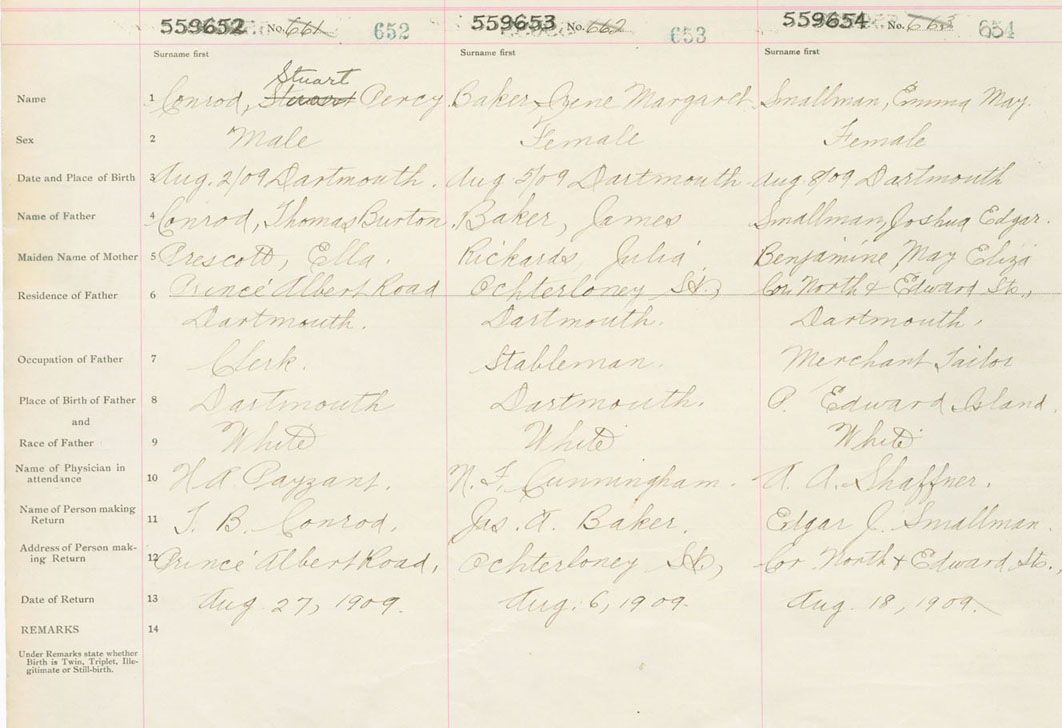 559652 No. 661 652 559653 No. 662 653 559654 No. 663 654
Surname first Surname first Surname first
Stuart
Name 1 Conrod, Stuart Percy Baker, Irene Margaret Smallman, Emma May.
Sex 2 Male Female Female
Date and Place of Birth 3 Aug. 2/09 Dartmouth. Aug 5/09 Dartmouth Aug 8/09 Dartmouth
Name of Father 4 Conrod, Thomas Burton Baker, James Smallman, Joshua Edgar.
Maiden Name of Mother 5 Prescott, Ella. Rickards, Julia Benjamine, May Eliza
Residence of Father 6 Prince Albert Road Ochterloney St, Cor. North & Edward Sts.,
Dartmouth. Dartmouth. Dartmouth.
Occupation of Father 7 Clerk. Stableman. Merchant Tailor
Place of Birth of Father 8 Dartmouth Dartmouth. P. Edward Island.
and
Race of Father 9 White White White
Name of Physician in
attendance 10 H A Payzant. N. F. Cunningham. A. A. Shaffner.
Name of Person making
Return 11 T. B. Conrod. Jas. A. Baker. Edgar J. Smallman
Address of Person mak-
ing Return 12 Prince Albert Road, Ochterloney St, Cor North & Edward Sts.,
Date of Return 13 Aug. 27, 1909. Aug. 6, 1909. Aug. 18, 1909.
REMARKS 14
Under Remarks state whether
Birth is Twin, Triplet, Ille-
gitimate or Still-birth.